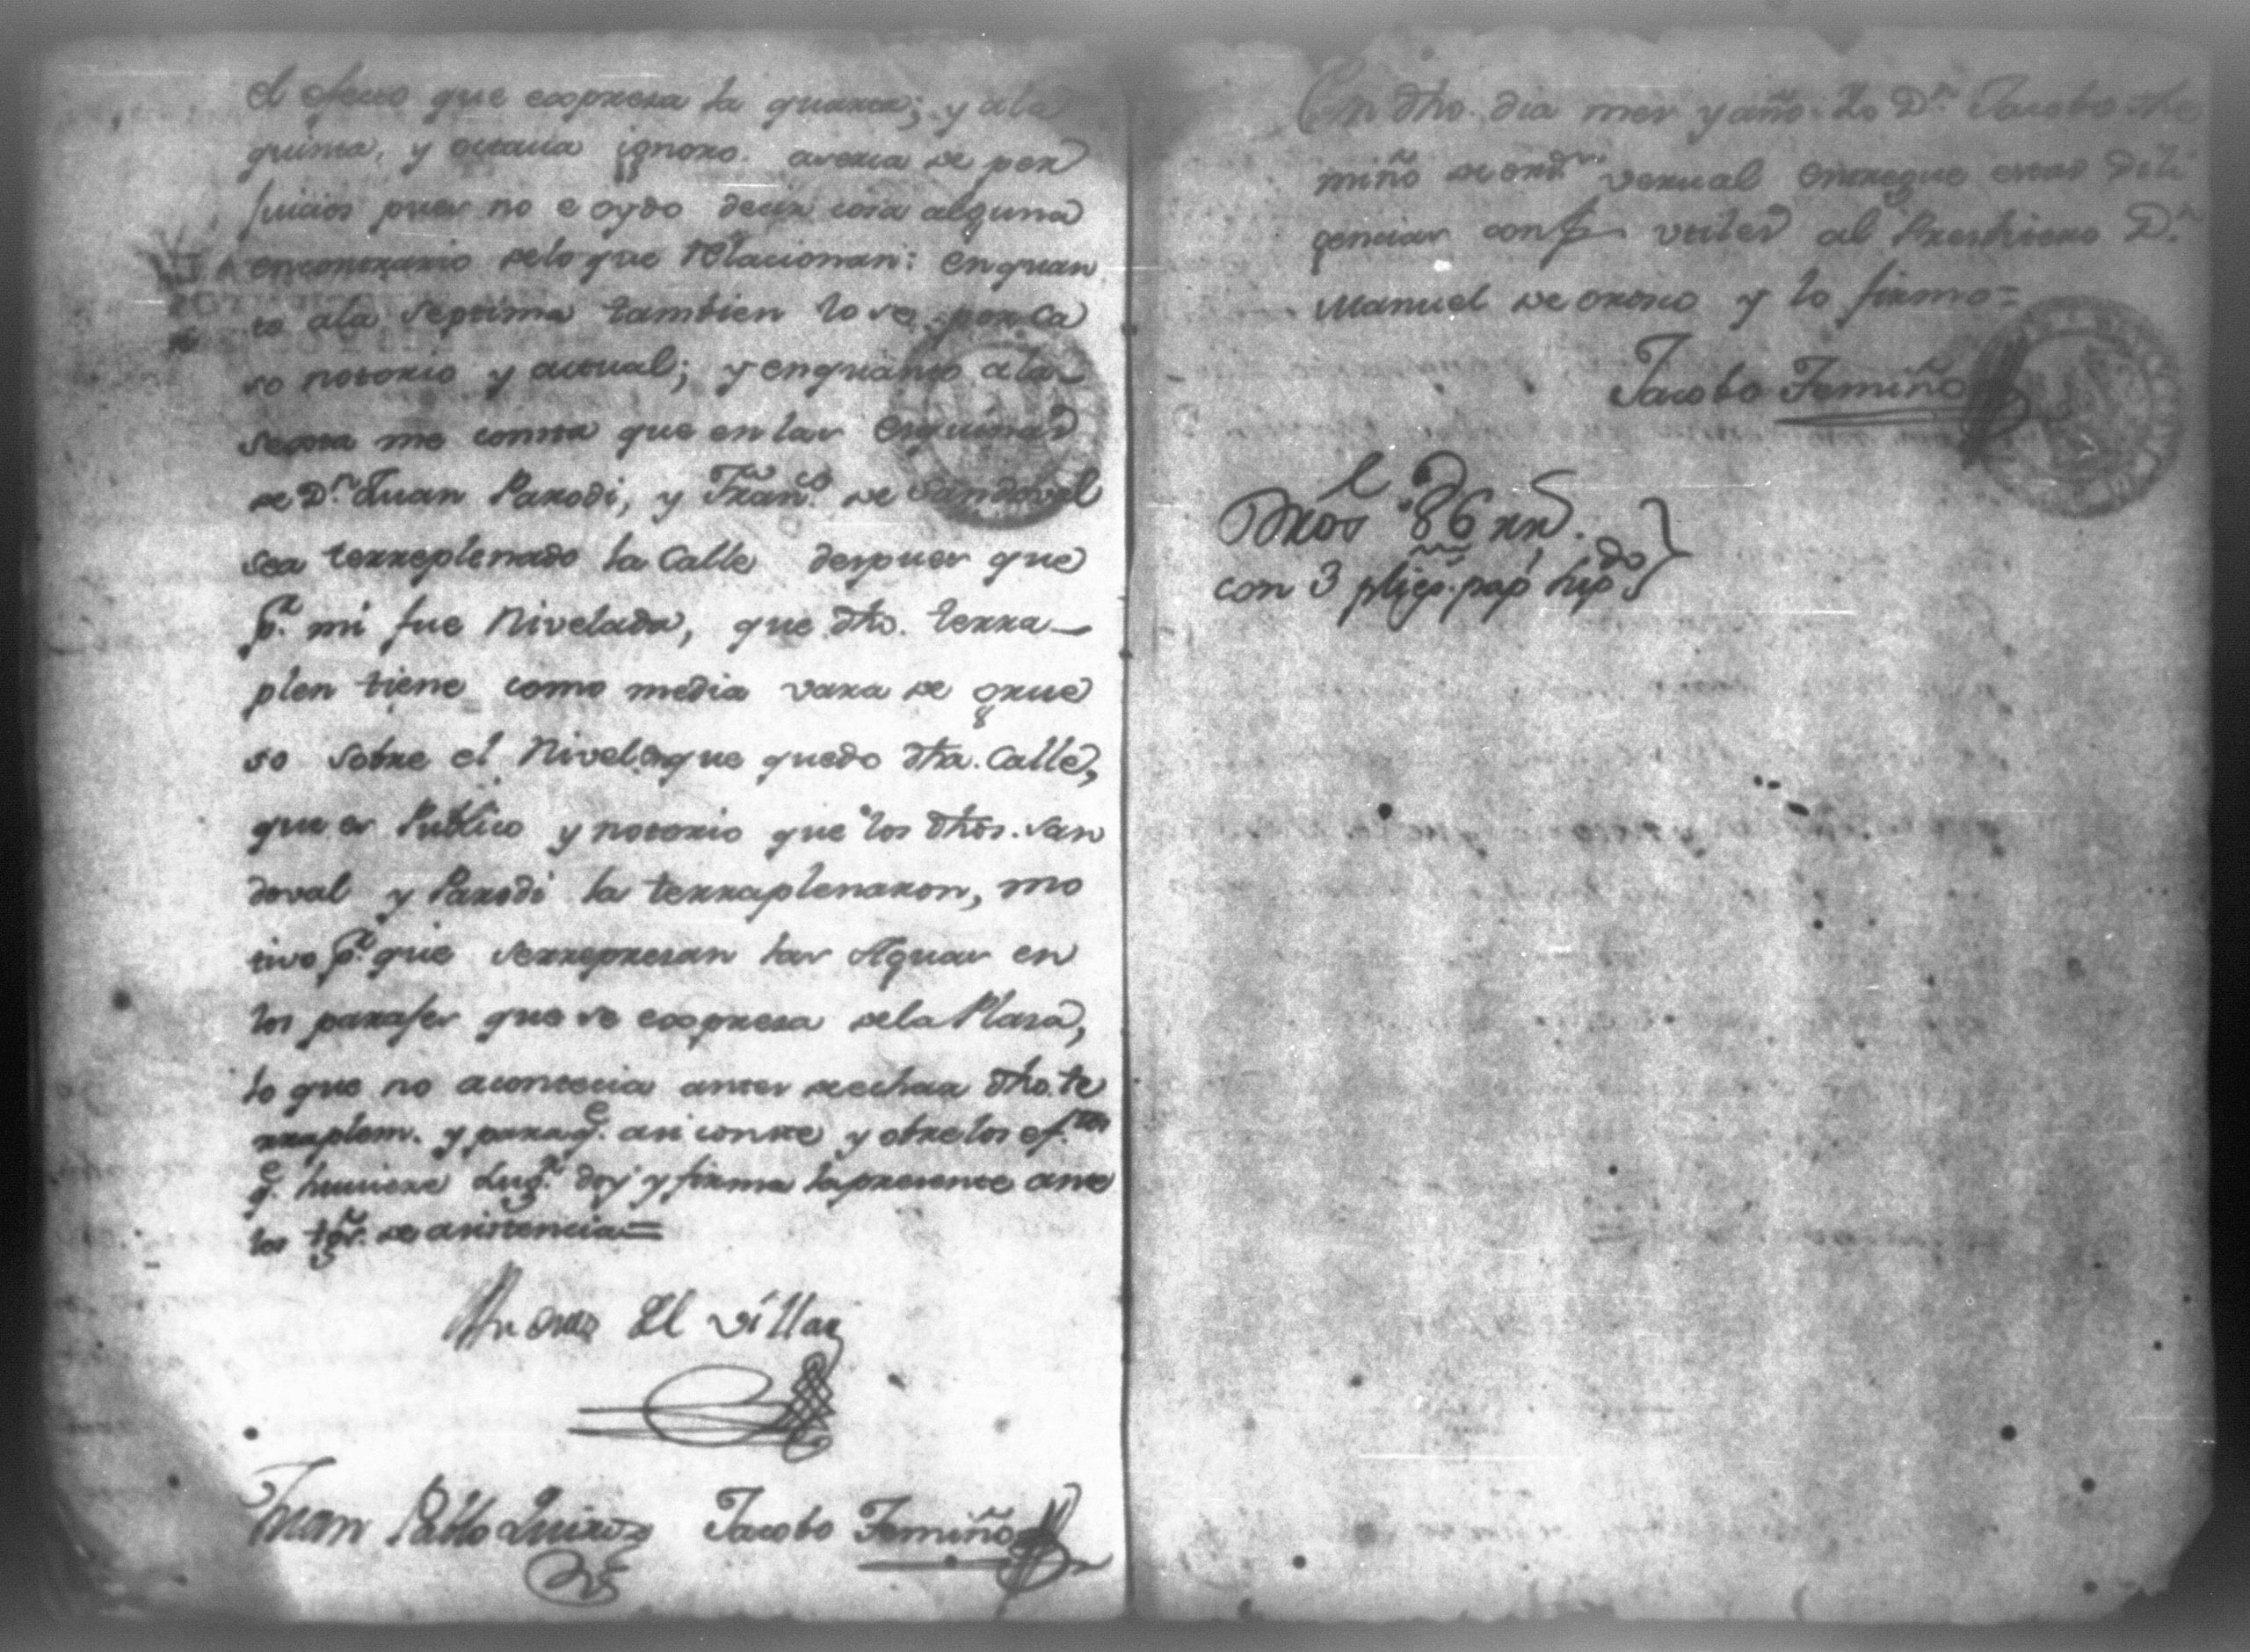 el efecto que expresa la quarta; y ala
quinta, y octava ignoro averia de per
juicios pues no e oydo decir cosa alguna
encontrario delo que relacionan: enquan
to ala septima tambien lo se por ca
so notorio y actual; y enquanto ala
sexta me consta que en las esquinas
de Dn. Juan Parodi, y Franco. de Sandoval
sea terreplenado la Calle despues que
pr. mi fue Nivelada, que dho. terra
plen tiene como media vara de grue
so sobre el Nivel enque quedo dha. Calle,
que es Publico y notorio que los dhos. San
doval y Parodi la terraplenaron, mo
tivo pr. que serrepresan las Aguas en
los parajes que se expresa dela Plasa,
lo que no acontecia antes de echar dho. te
rraplem. y paraqe. asi conste y obre los eftos
qe. huviere Lugr. doy y firma la presente ante
los tgos. de asistencia=
El Villar
Juan Pablo Quiroz Jacobo Femiño
En dho. dia mes y año. Yo Dn. Jacobo Fe
miño de ordn. verval entregue estas dili
gencias en fs. utiles al Presvitero Dn.
Manuel de Orosco y lo firmo=
Jacobo Femiño
Dros 86 rr.
con 3 plieg. pap hipdo